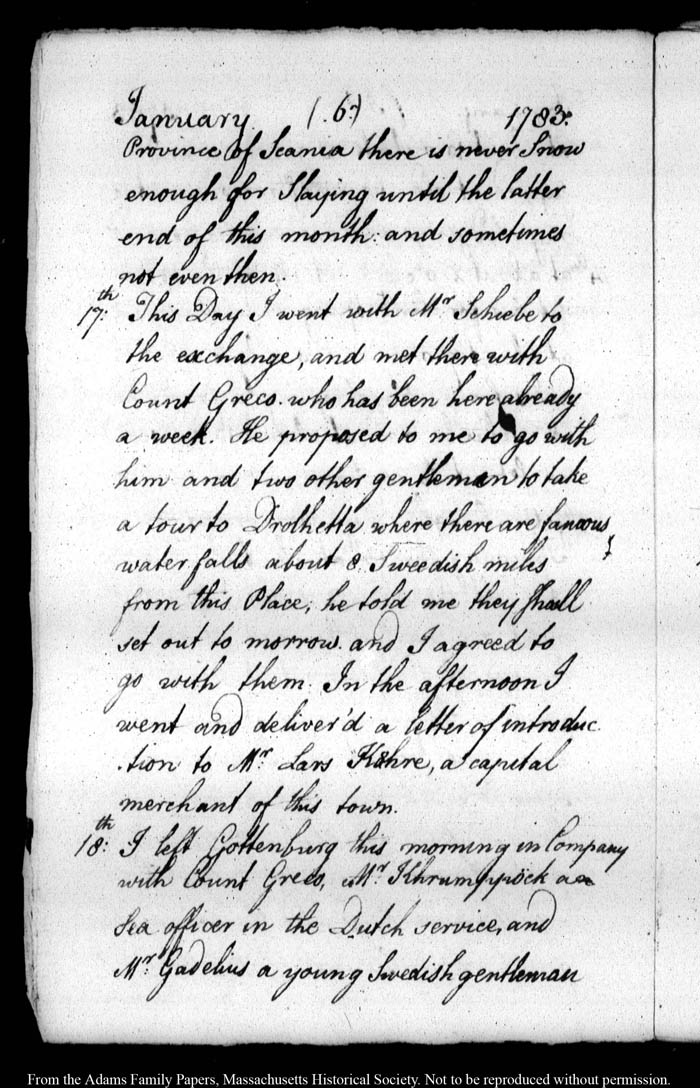 January (.6.) 1783.
Province of Scania there is never Snow
enough for Slaying until the latter
end of this month: and sometimes
not even then.
17:th This Day I went with Mr Schiebe to
the exchange, and met there with
Count Greco. who has been here already
a week. He proposed to me to go with
him and two other gentleman to take
a tour to Drolhetta where there are famous
water falls about 8 Sweedish miles
from this Place; he told me they shall
set out to morrow. and I agreed to
go with them. In the afternoon I
went and deliver'd a letter of introduc
.tion to Mr Lars Kåhre, a capital
merchant of this town.
18:th I left Gottenburg this morning in Company
with Count Greco, Mr Khrumppöck a
Sea officer in the Dutch service, and
Mr Gadelius a young Swedish gentleman
From the Adams Family Papers, Massachusetts Historical Society. Not to be reproduced without permission.